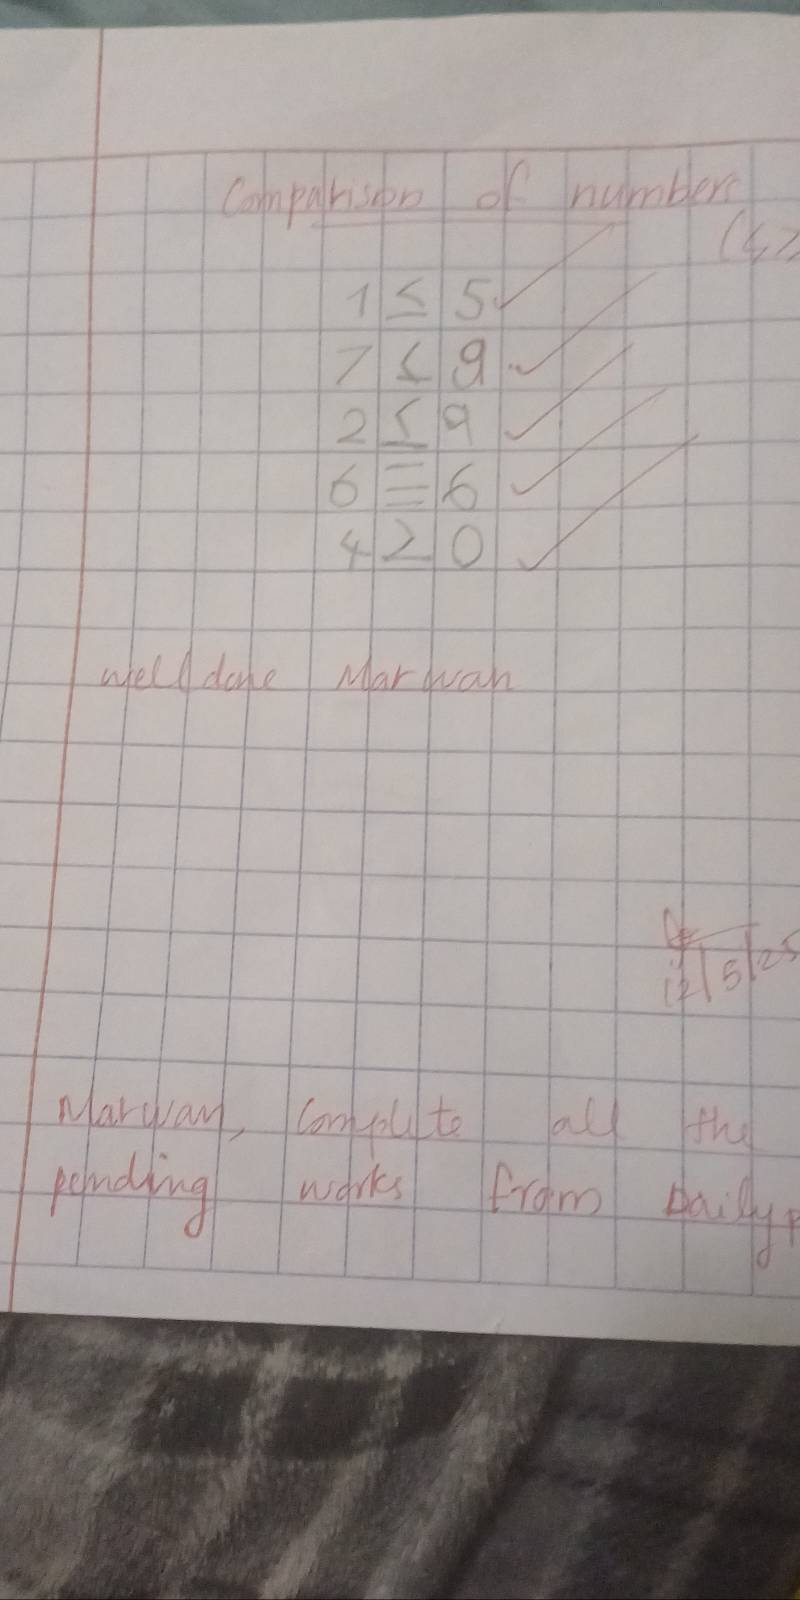 Comparison of numbers
(<,>
1 < 5
7 < 9
2 < 9
6 = 6
4 > 0
well done Marwan
12/5/25
Marwan, complete all the
pending works from Daily